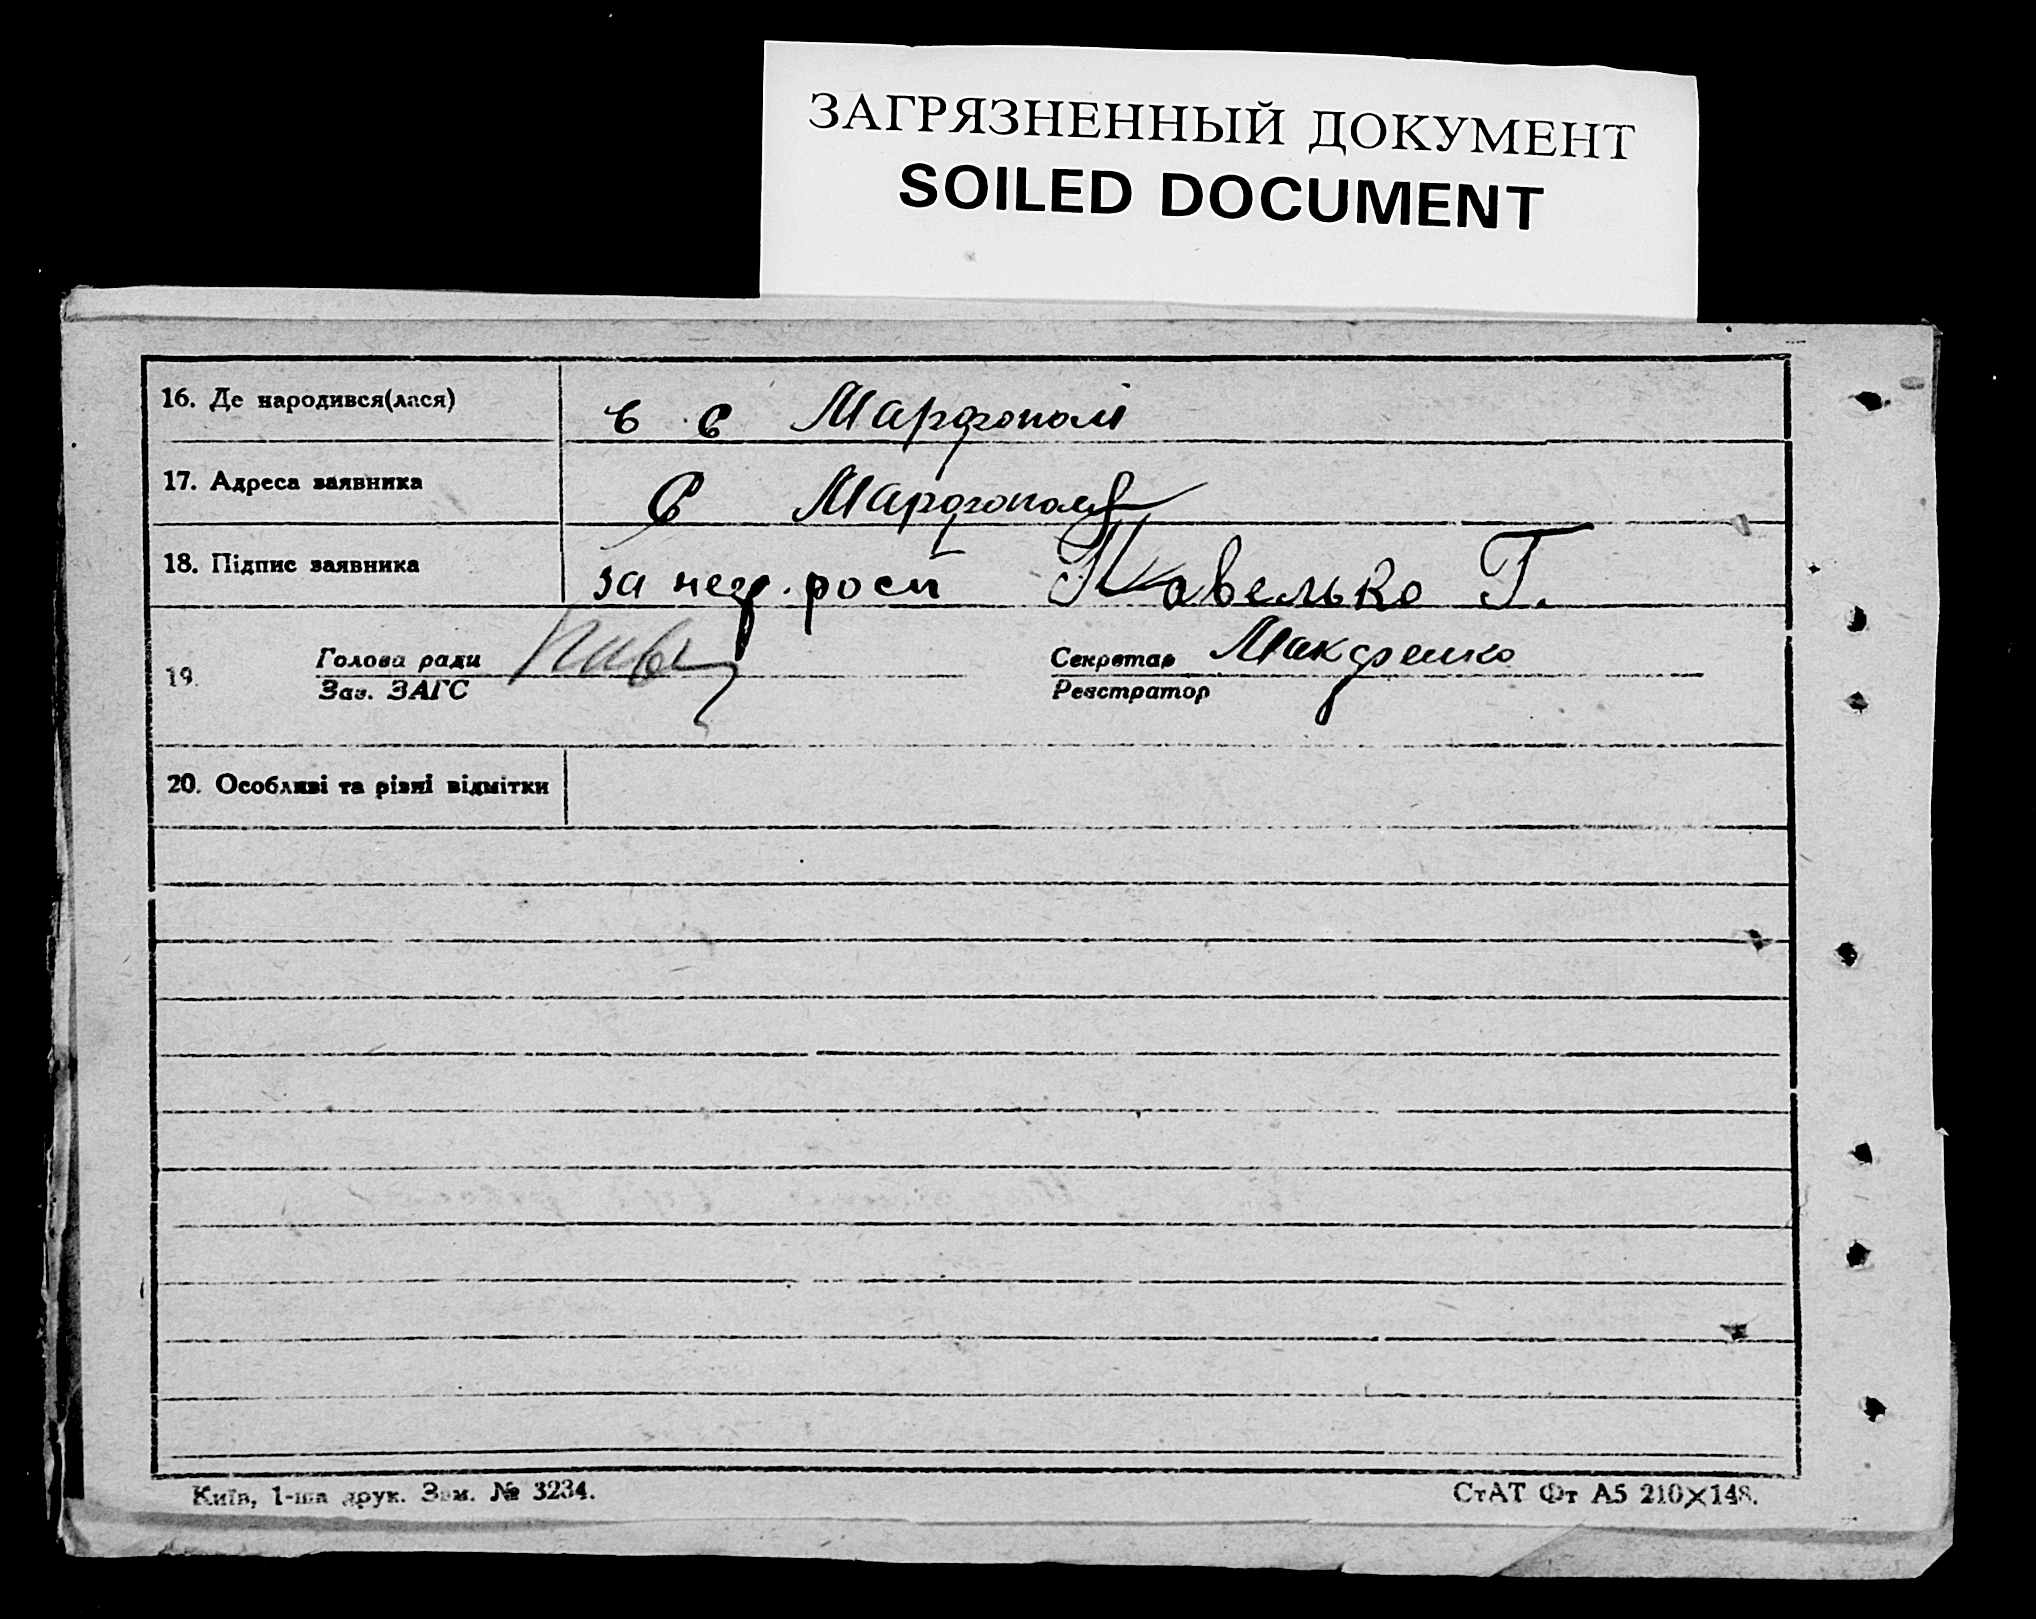 ЗАГРЯЗНЕННЫЙ ДОКУМЕНТ
SOILED DOCUMENT
16. Де народився(лася) в с Марфополі
17. Адреса заявника С Марфополь
18. Підпис заявника за негр. росп Павелько Г.
19. Голова ради Секретар Макфенко
Зав. ЗАГС Реєстратор
20. Особливі та різні відмітки
Київ, 1-ша друк. Зам. № 3234. СтАТ Фт А5 210×148.